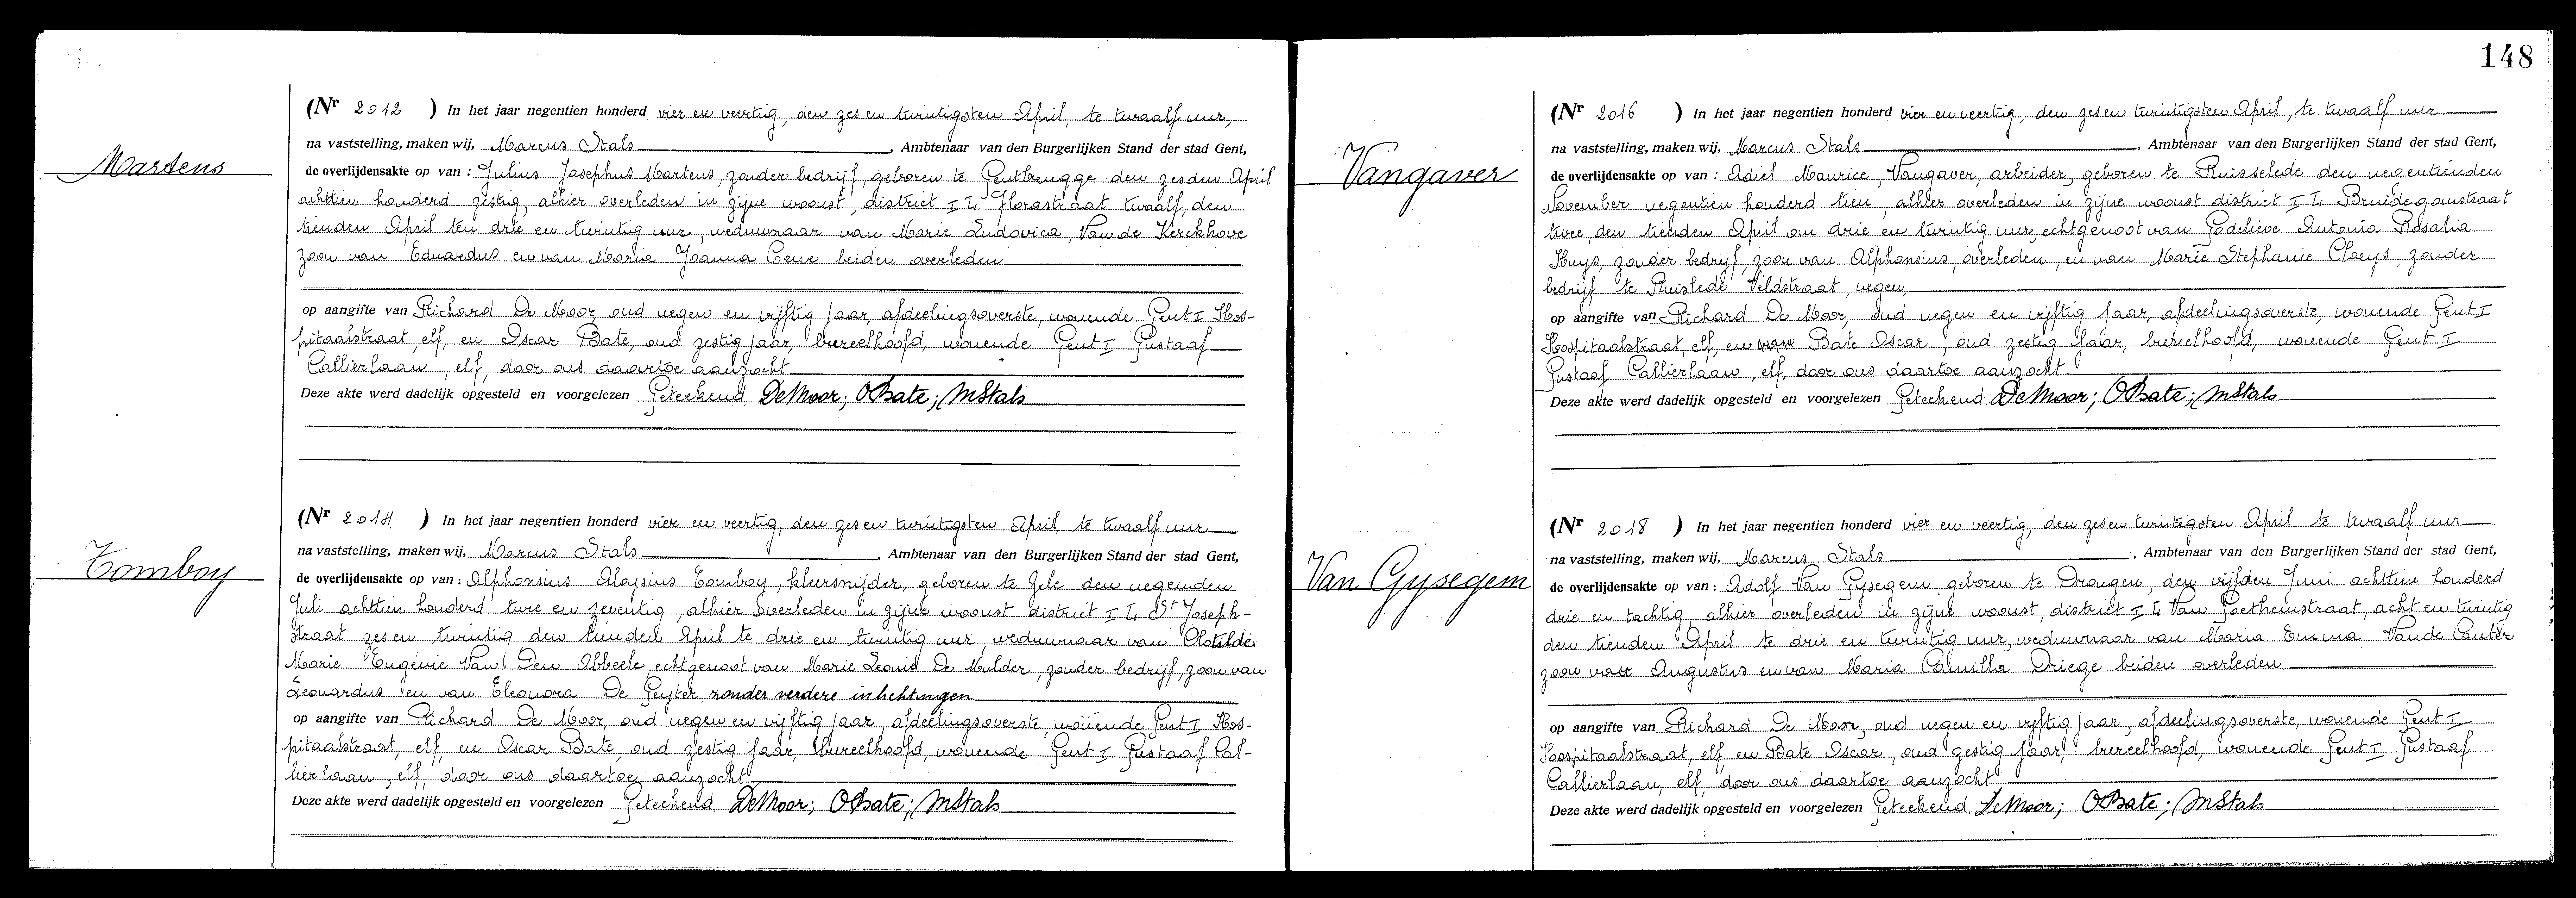 148
Martens
(Nr 2012 ) In het jaar negentien honderd vier en veertig, den zes en twintigsten April, te twaalf uur,
na vaststelling, maken wij, Marcus Stals, Ambtenaar van den Burgerlijken Stand der stad Gent,
de overlijdensakte op van : Julius Josephus Martens, zonder bedrijf, geboren te Gentbrugge den zesden April
achttien honderd zestig, alhier overleden in zijne woonst, district I L Florastraat twaalf, den
tienden April ten drie en twintig uur, weduwnaar van Marie Ludovica, Van de Kerckhove
zoon van Eduardus en van Maria Joanna beiden overleden
op aangifte van Richard De Moor, oud negen en vijftig jaar, afdeelingsoverste, wonende Gent I Hos-
pitaalstraat, elf, en Oscar Bate, oud zestig jaar, bureelhoofd, wonende Gent I Gustaaf
Callierlaan, elf, door ons daartoe aanzocht
Deze akte werd dadelijk opgesteld en voorgelezen Geteekend DeMoor; OBate; MStals
Tomboy
(Nr 2014 ) In het jaar negentien honderd vier en veertig, den zes en twintigsten April, te twaalf uur
na vaststelling, maken wij, Marcus Stals, Ambtenaar van den Burgerlijken Stand der stad Gent,
de overlijdensakte op van : Alphonsius Aloysius Tomboy, kleersnijder, geboren te Zele den negenden
Juli achttien honderd twee en zeventig, alhier overleden in zijne woonst district I L, St Joseph-
straat zes en twintig den tienden April te drie en twintig uur, weduwnaar van Clotilde
Marie Eugenie Van Den Abbeele echtgenoot van Marie Leonie De Mulder, zonder bedrijf, zoon van
Leonardus en van Eleonora De Geyter zonder verdere inlichtingen
op aangifte van Richard De Moor, oud negen en vijftig jaar, afdeelingsoverste, wonende Gent I Hos-
pitaalstraat, elf, en Oscar Bate, oud zestig jaar, bureelhoofd, wonende Gent I Gustaaf Cal-
lierlaan, elf, door ons daartoe aanzocht
Deze akte werd dadelijk opgesteld en voorgelezen Geteekend DeMoor; OBate; MStals
Vangaver
(Nr 2016 ) In het jaar negentien honderd vier en veertig, den zes en twintigsten April, te twaalf uur
na vaststelling, maken wij, Marcus Stals, Ambtenaar van den Burgerlijken Stand der stad Gent,
de overlijdensakte op van : Adiel Maurice, Vangaver, arbeider, geboren te Ruisselede den negentienden
November negentien honderd tien, alhier overleden in zijne woonst district I L Bruidegomstraat
twee, den tienden April om drie en twintig uur, echtgenoot van Godelieve Antonia Rosalia
Huys, zonder bedrijf, zoon van Alphonsius, overleden, en van Marie Stephanie Claeys, zonder
bedrijf te Ruislede Veldstraat, negen,
op aangifte van Richard De Moor, oud negen en vijftig jaar, afdeelingsoverste, wonende Gent I
Hospitaalstraat, elf, en Bate Oscar, oud zestig jaar, bureelhoofd, wonende Gent I
Gustaaf Callierlaan, elf, door ons daartoe aanzocht
Deze akte werd dadelijk opgesteld en voorgelezen Geteekend DeMoor; OBate; MStals
Van Gysegem
(Nr 2018 ) In het jaar negentien honderd vier en veertig, den zes en twintigsten April te twaalf uur
na vaststelling, maken wij, Marcus Stals, Ambtenaar van den Burgerlijken Stand der stad Gent,
de overlijdensakte op van : Adolf Van Gysegem, geboren te Drongen, den vijfden Juni achttien honderd
drie en tachtig, alhier overleden in zijne woonst, district I L Van Goethemstraat, acht en twintig
den tienden April te drie en twintig uur, weduwnaar van Maria Emma Vande Canter
zoon van Augustus en van Maria Camilla Driege beiden overleden
op aangifte van Richard De Moor, oud negen en vijftig jaar, afdeelingsoverste, wonende Gent I
Hospitaalstraat, elf en Bate Oscar, oud zestig jaar, bureelhoofd, wonende Gent I Gustaaf
Callierlaan, elf, door ons daartoe aanzocht
Deze akte werd dadelijk opgesteld en voorgelezen Geteekend DeMoor; OBate; MStals